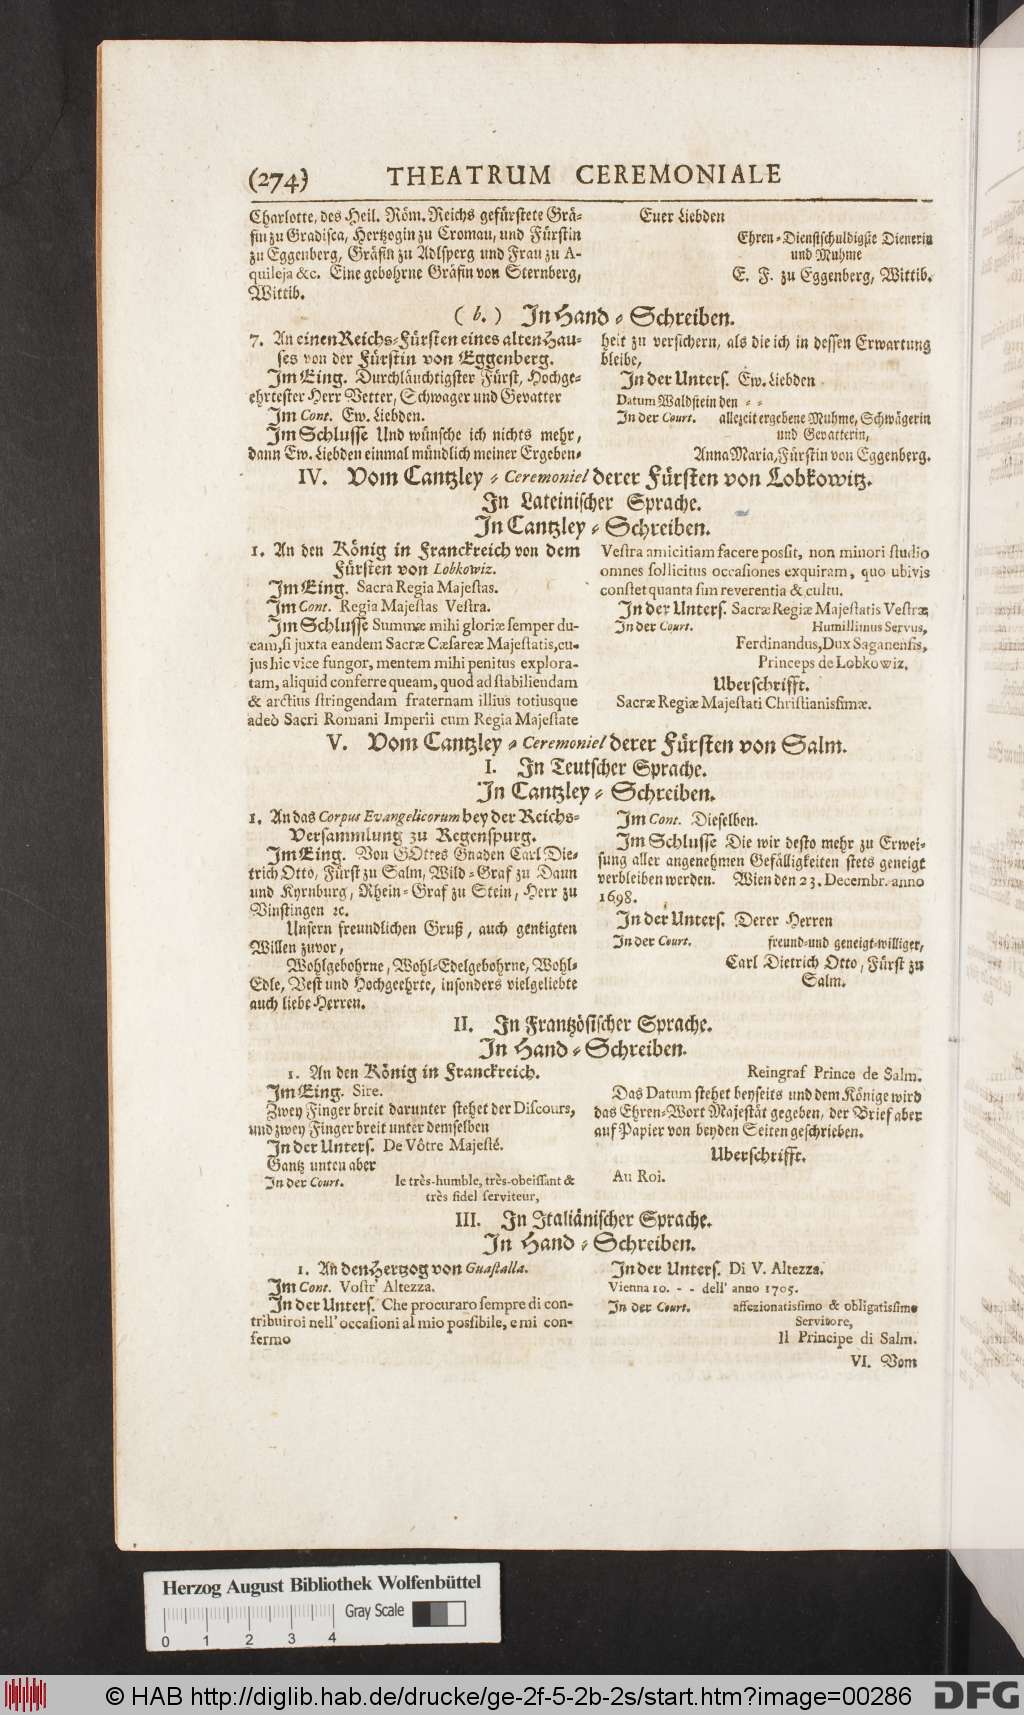 (274) THEATRUM CEREMONIALE
Charlotte, des Heil. Röm. Reichs gefürstete Grä-
fin zu Gradisca, Hertzogin zu Cromau, und Fürstin
zu Eggenberg, Gräfin zu Adlsperg und Frau zu A-
quileja &c. Eine gebohrne Gräfin von Sternberg,
Wittib.
Euer Liebden
Ehren-Dienstschuldigste Dienerin
und Muhme
E. F. zu Eggenberg, Wittib.
(b.) In Hand-Schreiben.
7. An einen Reichs-Fürsten eines alten Hau-
ses von der Fürstin von Eggenberg.
Im Eing. Durchläuchtigster Fürst, Hochge-
ehrtester Herr Vetter, Schwager und Gevatter
Im Cont. Ew. Liebden.
Im Schlusse Und wünsche ich nichts mehr,
dann Ew. Liebden einmal mündlich meiner Ergeben-
heit zu versichern, als die ich in dessen Erwartung
bleibe,
In der Unters. Ew. Liebden
Datum Waldstein den - -
In der Court. allezeit ergebene Muhme, Schwägerin
und Gevatterin,
Anna Maria, Fürstin von Eggenberg.
IV. Vom Cantzley-Ceremoniel derer Fürsten von Lobkowitz.
In Lateinischer Sprache.
In Cantzley-Schreiben.
1. An den König in Franckreich von dem
Fürsten von Lobkowiz.
Im Eing. Sacra Regia Majestas.
Im Cont. Regia Majestas Vestra.
Im Schlusse Summæ mihi gloriæ semper du-
cam, si juxta eandem Sacræ Cæsareæ Majestatis, cu-
jus hic vice fungor, mentem mihi penitus explora-
tam, aliquid conferre queam, quod ad stabiliendam
& arctius stringendam fraternam illius totiusque
adeò Sacri Romani Imperii cum Regia Majestate
Vestra amicitiam facere possit, non minori studio
omnes sollicitus occasiones exquiram, quo ubivis
constet quanta sim reverentia & cultu.
In der Unters. Sacræ Regiæ Majestatis Vestræ
In der Court. Humillimus Servus,
Ferdinandus, Dux Saganensis,
Princeps de Lobkowiz.
Uberschrifft.
Sacræ Regiæ Majestati Christianissimæ.
V. Vom Cantzley-Ceremoniel derer Fürsten von Salm.
I. In Teutscher Sprache.
In Cantzley-Schreiben.
1. An das Corpus Evangelicorum bey der Reichs-
Versammlung zu Regenspurg.
Im Eing. Von GOttes Gnaden Carl Die-
trich Otto, Fürst zu Salm, Wild-Graf zu Daun
und Kyrnburg, Rhein-Graf zu Stein, Herr zu
Vinstingen ꝛc.
Unsern freundlichen Gruß, auch geneigten
Willen zuvor,
Wohlgebohrne, Wohl-Edelgebohrne, Wohl-
Edle, Vest und Hochgeehrte, insonders vielgeliebte
auch liebe Herren.
Im Cont. Dieselben.
Im Schlusse Die wir desto mehr zu Erwei-
sung aller angenehmen Gefälligkeiten stets geneigt
verbleiben werden. Wien den 23. Decembr. anno
1698.
In der Unters. Derer Herren
In der Court. freund-und geneigt-williger,
Carl Dietrich Otto, Fürst zu
Salm.
II. In Frantzösischer Sprache.
In Hand-Schreiben.
1. An den König in Franckreich.
Im Eing. Sire.
Zwey Finger breit darunter stehet der Discours,
und zwey Finger breit unter demselben
In der Unters. De Vôtre Majesté.
Gantz unten aber
In der Court. le très-humble, très-obeissant &
très fidel serviteur,
Reingraf Prince de Salm.
Das Datum stehet beyseits und dem Könige wird
das Ehren-Wort Majestät gegeben, der Brief aber
auf Papier von beyden Seiten geschrieben.
Uberschrifft.
Au Roi.
III. In Italiänischer Sprache.
In Hand-Schreiben.
1. An den Hertzog von Guastalla.
Im Cont. Vostr' Altezza.
In der Unters. Che procuraro sempre di con-
tribuiroi nell' occasioni al mio possibile, e mi con-
fermo
In der Unters. Di V. Altezza.
Vienna 10. - - dell' anno 1705.
In der Court. affezionatissimo & obligatissimo
Servitore,
Il Principe di Salm.
VI. Vom
Herzog August Bibliothek Wolfenbüttel
Gray Scale
0 1 2 3 4
© HAB http://diglib.hab.de/drucke/ge-2f-5-2b-2s/start.htm?image=00286
DFG